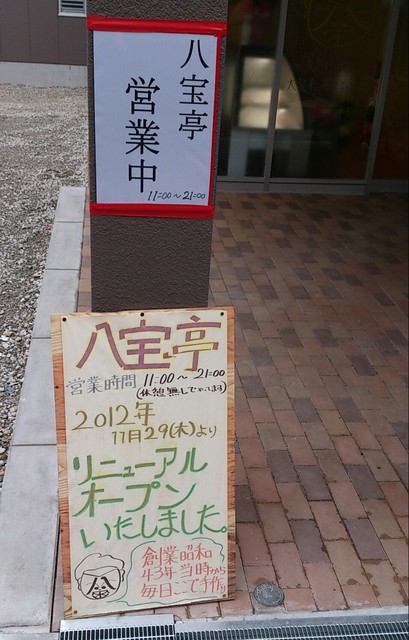 八宝亭
営業中
11:00〜21:00
八宝亭
営業時間 11:00〜21:00
(休憩無しでやってます)
2012年
11月29(木)より
リニューアル
オープン
いたしました。
創業昭和
43年当時から
毎日ここで手作り
八宝